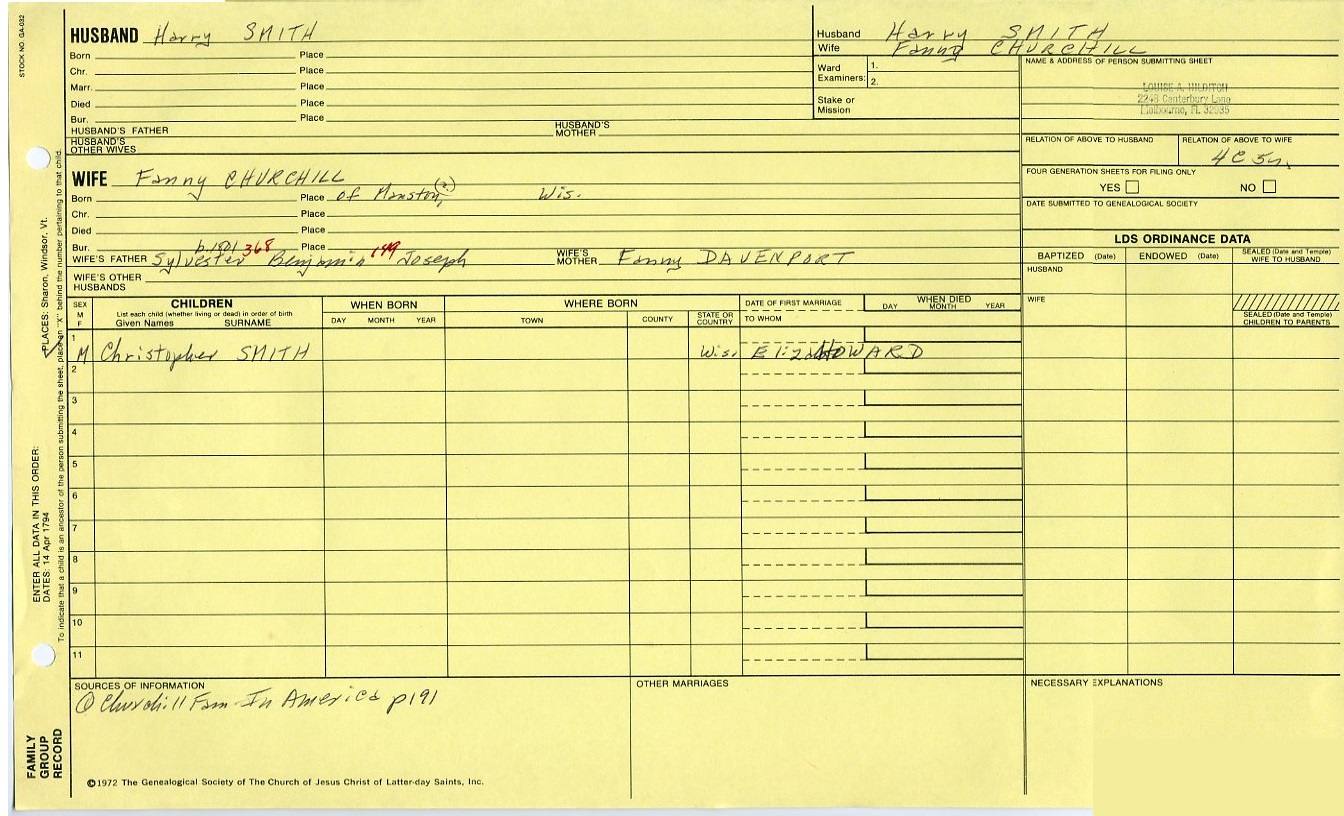 STOCK NO. GA-032
HUSBAND Harry SMITH
Born Place
Chr. Place
Marr. Place
Died Place
Bur. Place
HUSBAND'S FATHER HUSBAND'S MOTHER
HUSBAND'S OTHER WIVES
Husband Harry SMITH
Wife Fanny CHURCHILL
Ward Examiners: 1.
2.
Stake or Mission
NAME & ADDRESS OF PERSON SUBMITTING SHEET
LOUISE A. HILDITCH
2248 Canterbury Lane
Melbourne, FL 32935
RELATION OF ABOVE TO HUSBAND RELATION OF ABOVE TO WIFE
4C5r
FOUR GENERATION SHEETS FOR FILING ONLY
YES NO
DATE SUBMITTED TO GENEALOGICAL SOCIETY
WIFE Fanny CHURCHILL
Born Place of Manston, (?) Wis.
Chr. Place
Died Place
Bur. Place
b.1801 368 149
WIFE'S FATHER Sylvester Benjamin Joseph WIFE'S MOTHER Fanny DAVENPORT
WIFE'S OTHER HUSBANDS
LDS ORDINANCE DATA
BAPTIZED (Date) ENDOWED (Date) SEALED (Date and Temple) WIFE TO HUSBAND
HUSBAND
WIFE
SEALED (Date and Temple) CHILDREN TO PARENTS
SEX M F
CHILDREN
List each child (whether living or dead) in order of birth
Given Names SURNAME
WHEN BORN
DAY MONTH YEAR
WHERE BORN
TOWN COUNTY STATE OR COUNTRY
DATE OF FIRST MARRIAGE
TO WHOM
WHEN DIED
DAY MONTH YEAR
1
M Christopher SMITH Wis. Eliza HOWARD
2
3
4
5
6
7
8
9
10
11
SOURCES OF INFORMATION
Churchill Fam In America p191
OTHER MARRIAGES
NECESSARY EXPLANATIONS
©1972 The Genealogical Society of The Church of Jesus Christ of Latter-day Saints, Inc.
FAMILY GROUP RECORD
ENTER ALL DATA IN THIS ORDER:
DATES: 14 Apr 1794
PLACES: Sharon, Windsor, Vt.
To indicate that a child is an ancestor of the person submitting the sheet, place an "X" behind the number pertaining to that child.